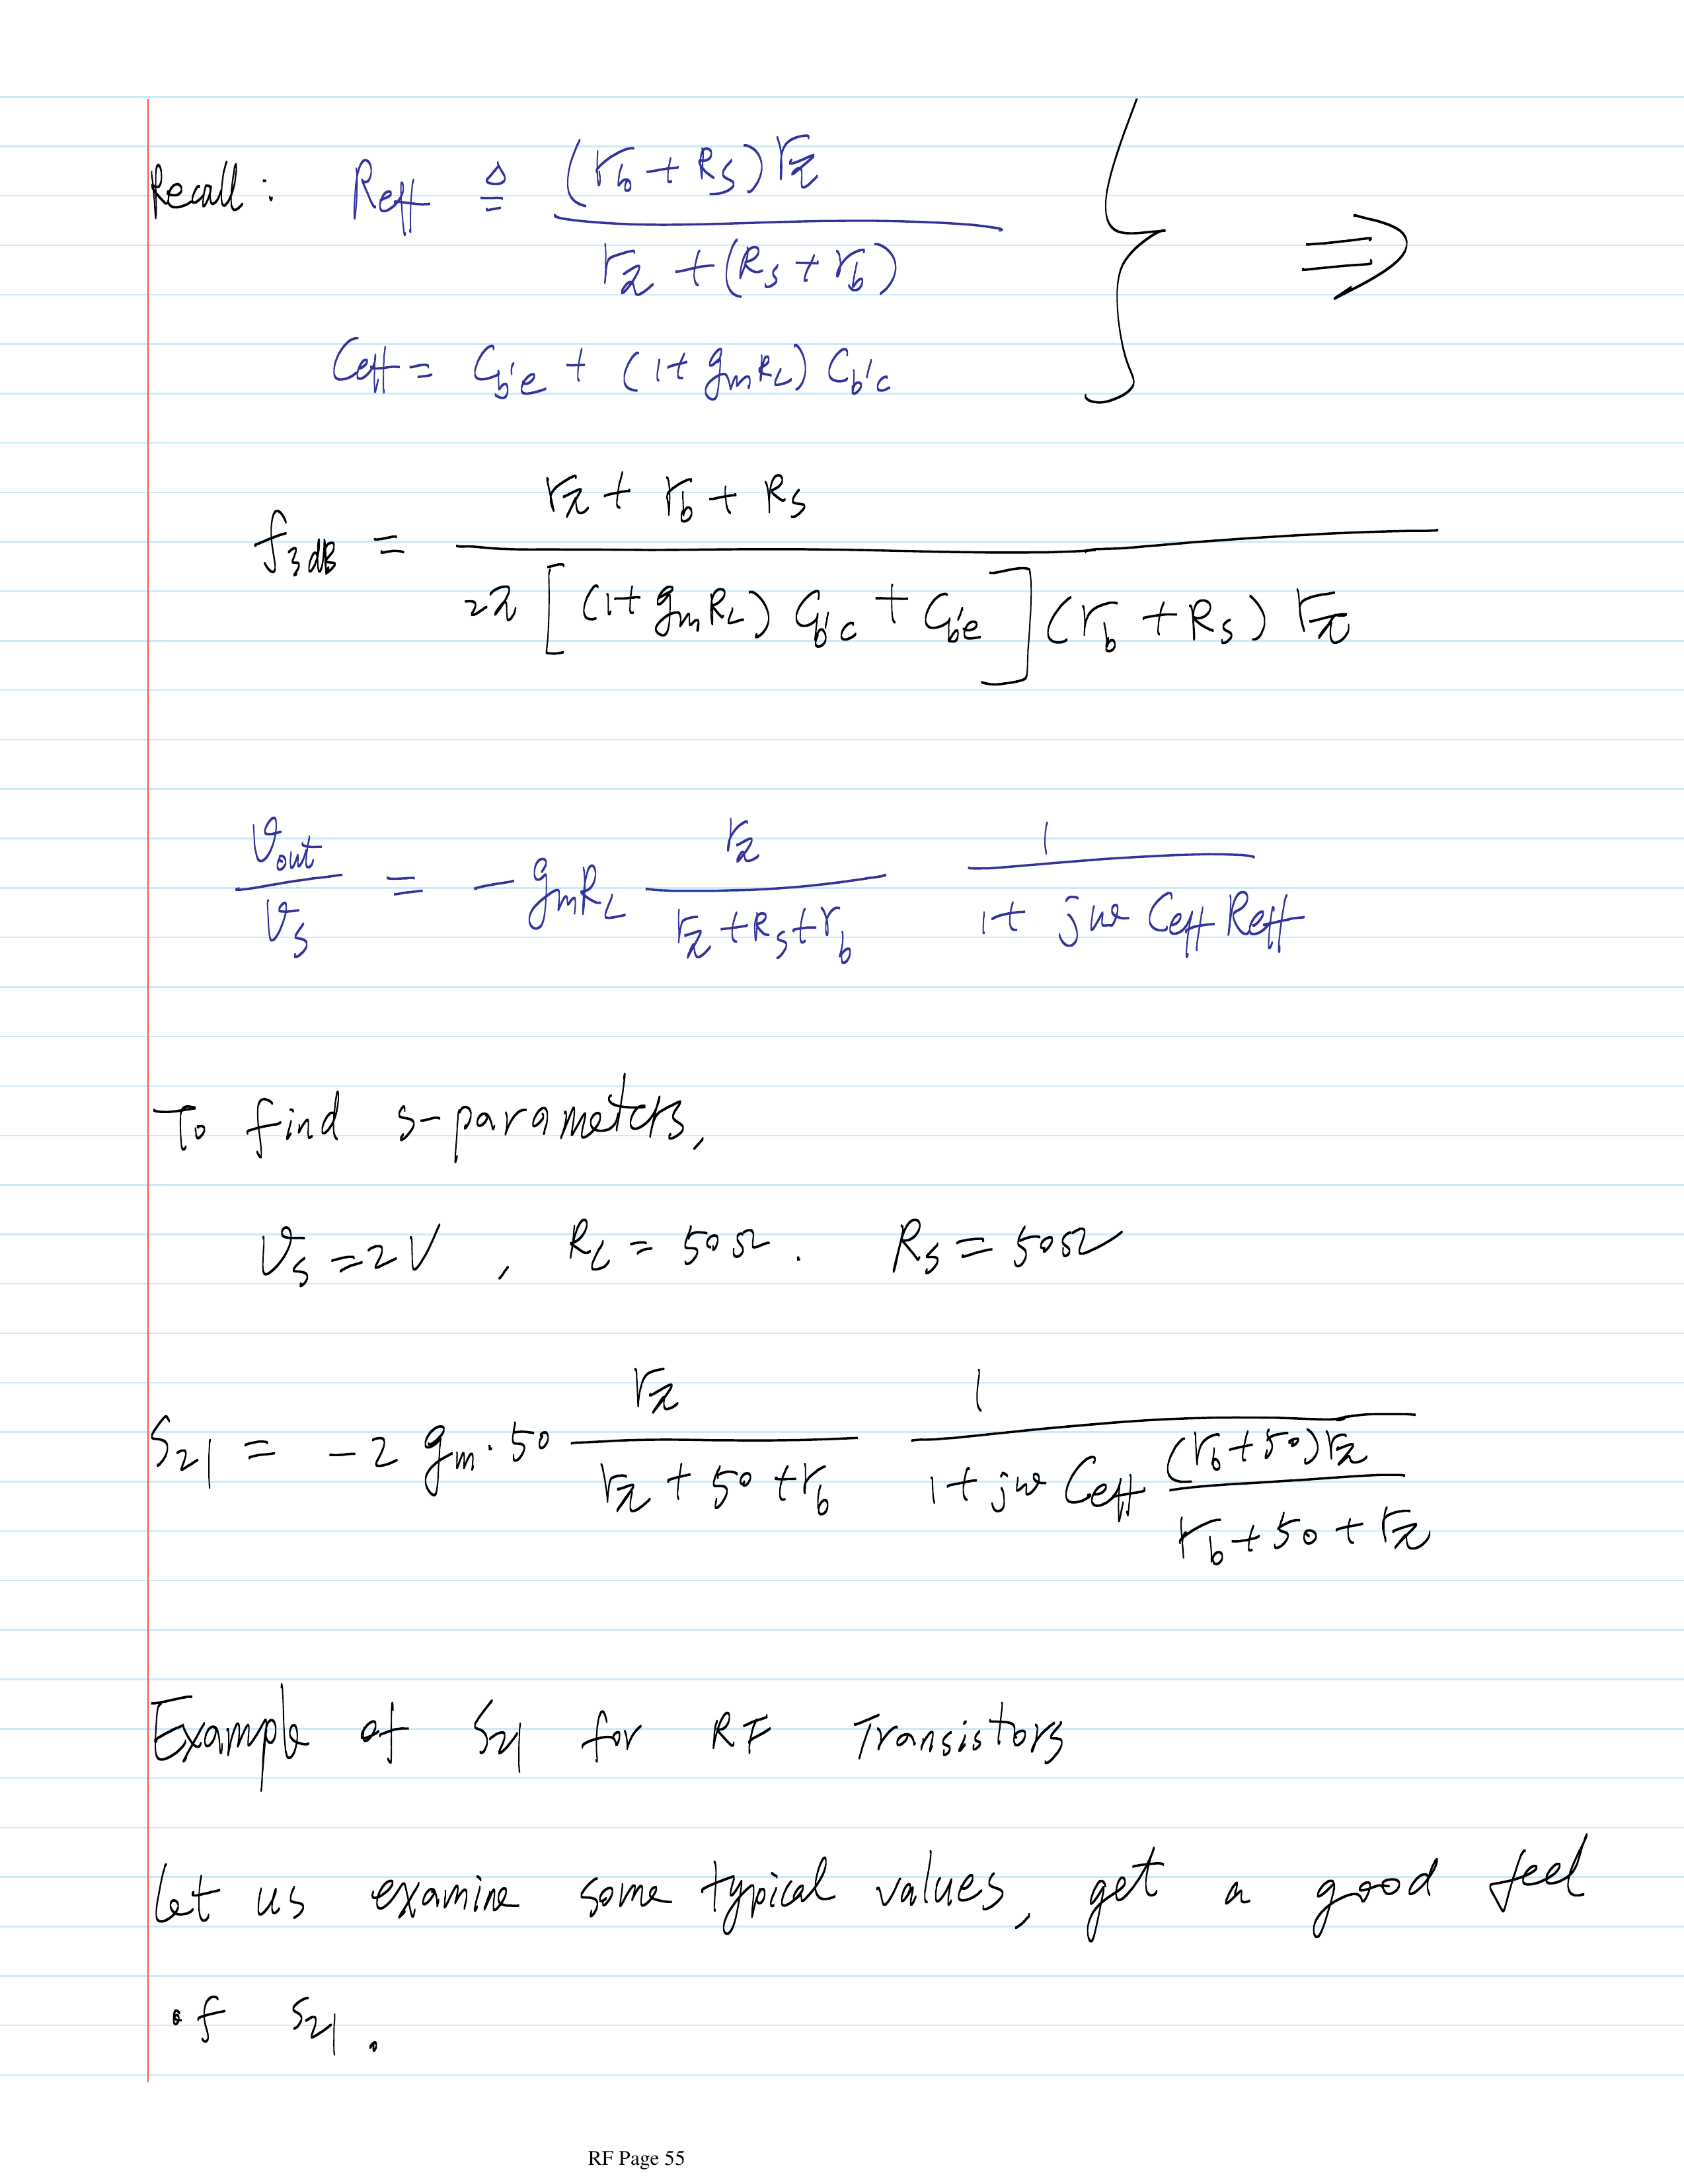 Recall : R_eff ≜ \frac{(r_b + R_S) r_π}{r_π + (R_S + r_b)} } ⇒
C_eff = C_{b'e} + (1 + g_m R_L) C_{b'c}
f_{3dB} = \frac{r_π + r_b + R_S}{2π [(1 + g_m R_L) C_{b'c} + C_{b'e}] (r_b + R_S) r_π}
\frac{v_out}{v_s} = - g_m R_L \frac{r_π}{r_π + R_S + r_b} \frac{1}{1 + jω C_eff R_eff}
To find s-parameters,
v_s = 2V , R_L = 50Ω . R_S = 50Ω
S_21 = -2 g_m · 50 \frac{r_π}{r_π + 50 + r_b} \frac{1}{1 + jω C_eff \frac{(r_b + 50) r_π}{r_b + 50 + r_π}}
Example of S_21 for RF Transistors
Let us examine some typical values, get a good feel
of S_21.
RF Page 55